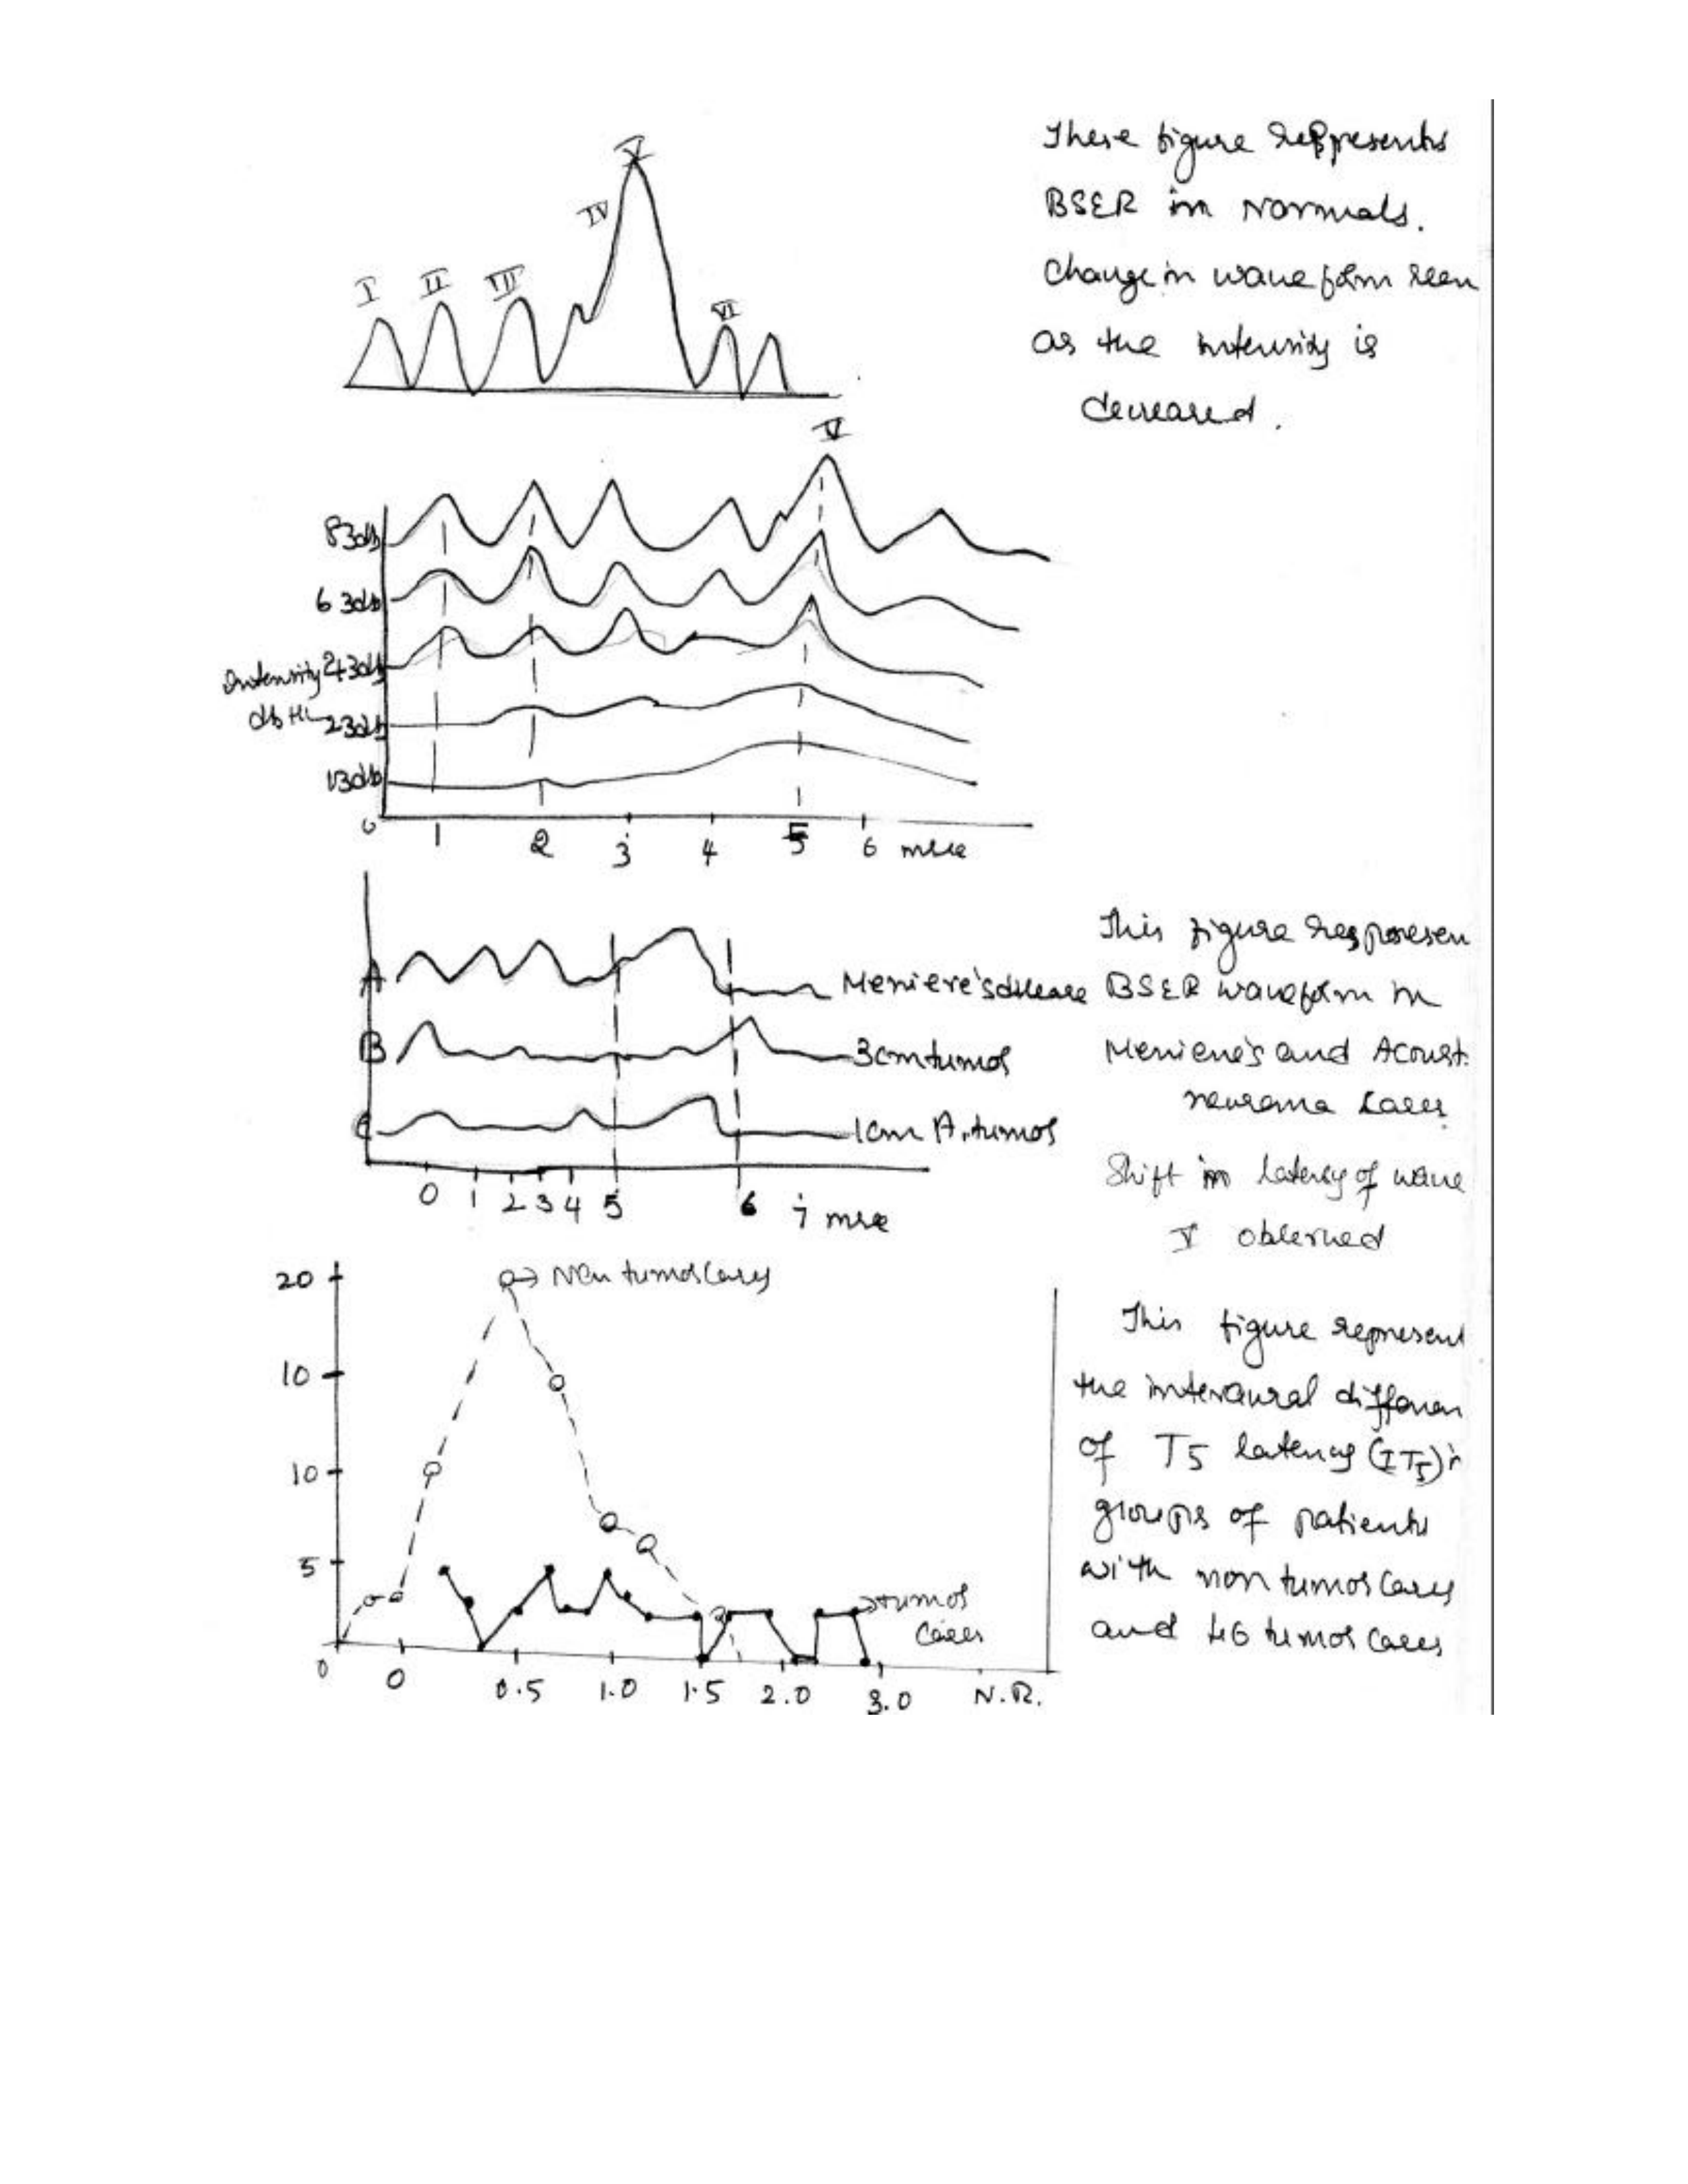 I II III IV V VI
These figure represents
BSER in Normals.
Change in wave form seen
as the intensity is
decreased.
V
83db
63db
Intensity 43db
db HL 23db
13db
0 1 2 3 4 5 6 msec
A Meniere's disease
B 3cm tumor
C 1cm A. tumor
0 1 2 3 4 5 6 7 msec
This figure
BSER waveform in
Meniere's and Acoust.
neuroma cases.
Shift in latency of wave
V observed
20 Non tumor cases
10
10
5
tumor
cases
0 0 0.5 1.0 1.5 2.0 3.0 N.R.
This figure represent
the interaural differen
of T5 latency (IT5) i
groups of patients
with non tumor cases
and 46 tumor cases